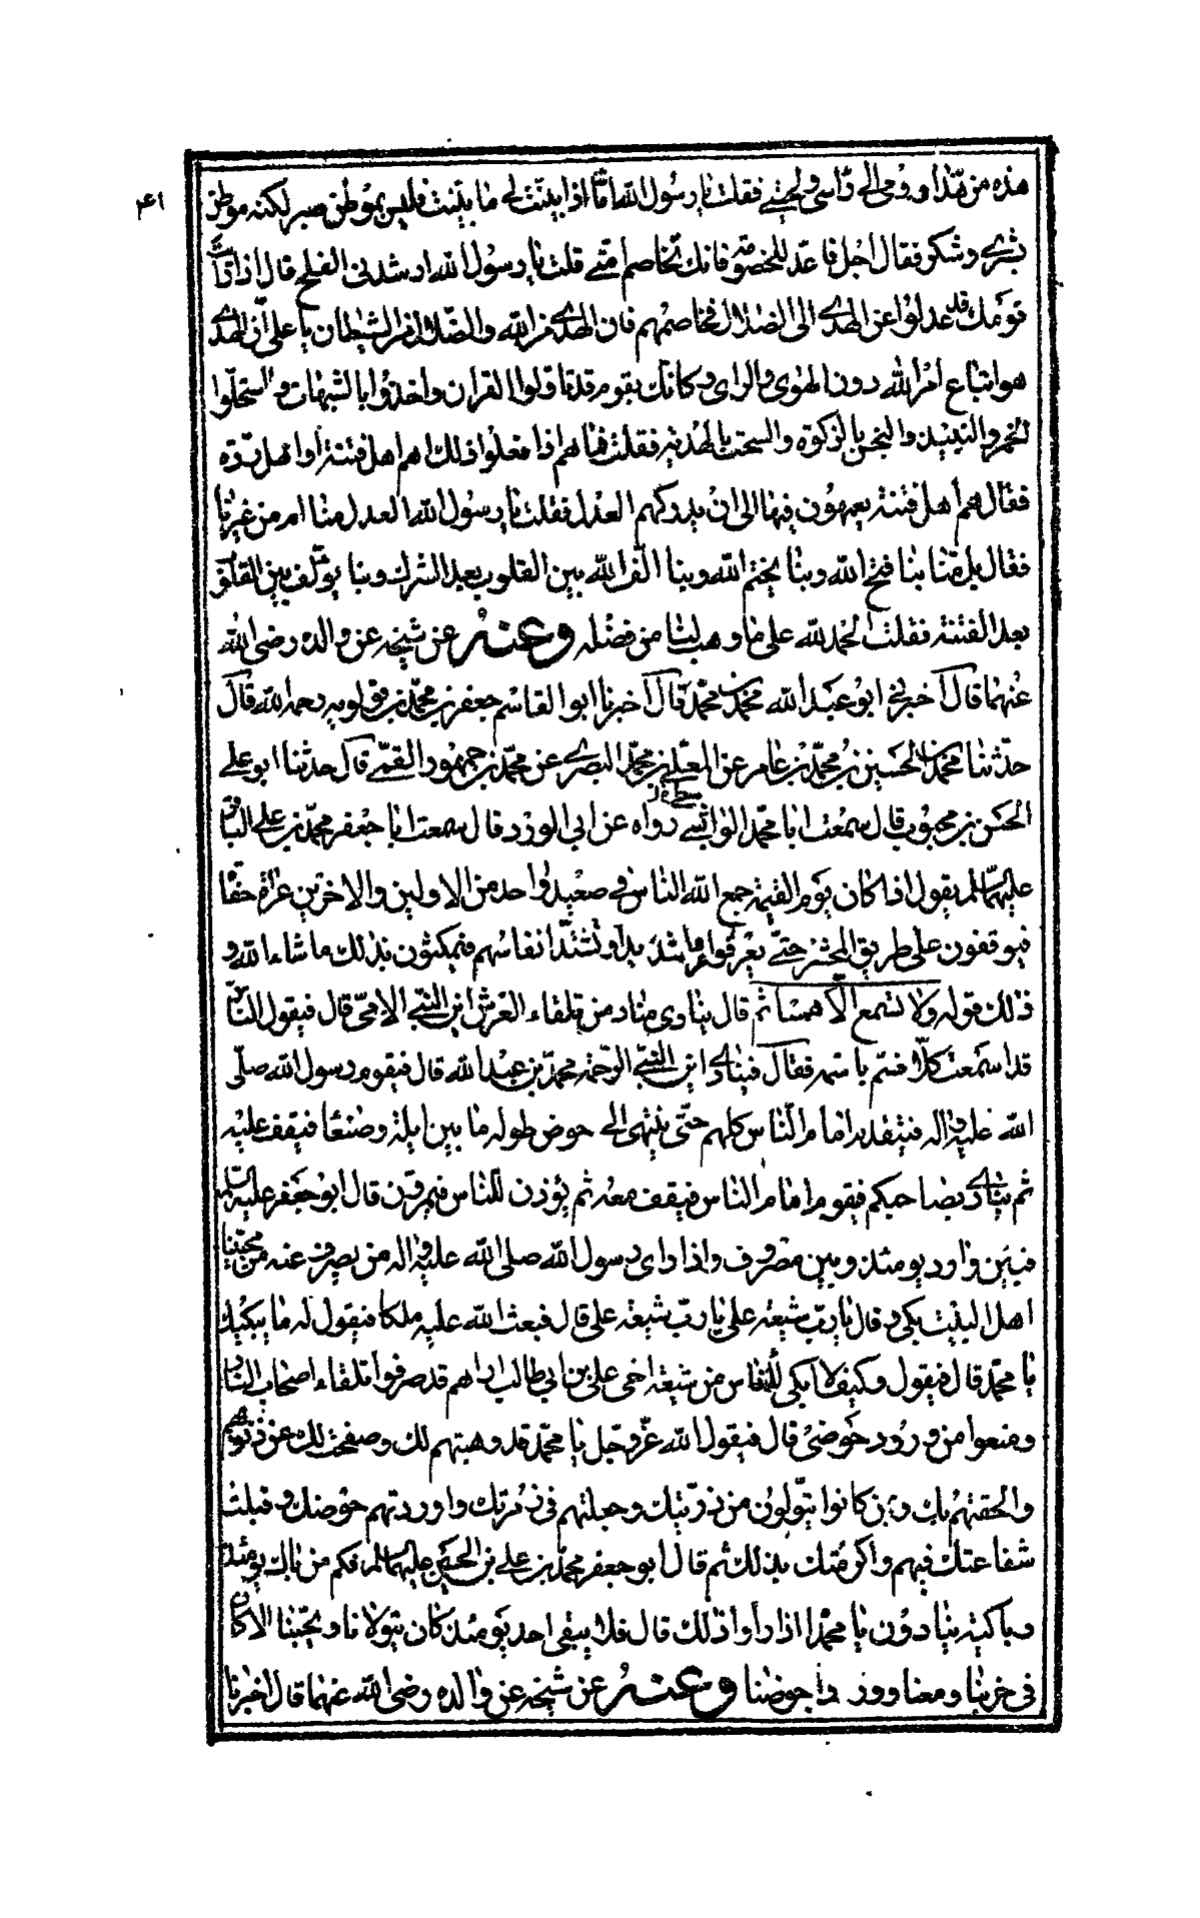 ٤١
هذه من هذا واومى الى راسى ولحيتى فقلت يا رسول الله امّا اذا بينت لى ما بينت فليس بموطن صبر لكنه موطن
بشرى وشكر فقال اجل فاعد للخصومة فانك تخاصم امتى قلت يا رسول الله ارشدنى الفلج قال اذا رايت
قومك قد عدلوا عن الهدى الى الضلال فخاصمهم فان الهدى من الله والضلال من الشيطان يا على ان الهدى
هو اتباع امر الله دون الهوى والراى وكانك بقوم قد تاولوا القران واخذوا بالشبهات واستحلّوا
الخمر والنبيذ والبخس بالزكوة والسحت بالهدية فقلت فما هم اذا فعلوا ذلك اهم اهل فتنة او اهل ردّة
فقال هم اهل فتنة يعمهون فيها الى ان يدركهم العدل فقلت يا رسول الله العدل منا ام من غيرنا
فقال بل منّا بنا فتح الله وبنا يختم الله وبنا الّف الله بين القلوب بعد الشرك وبنا يؤلّف بين القلوب
بعد الفتنة فقلت الحمد لله على ما وهب لنا من فضله وعنه عن شيخه عن والده رضى الله
عنهما قال اخبرنى ابو عبد الله محمد بن محمد قال اخبرنا ابو القاسم جعفر بن محمد بن قولويه رحمه الله قال
حدّثنا محمد بن الحسين بن محمد بن عامر عن المعلى بن محمد البصرى عن محمد بن جمهور القمّى قال حدثنا ابو على
الحسن بن محبوب قال سمعت ابا محمد الوابشى رواه عن ابى الورد قال سمعت ابا جعفر محمّد بن على الباقر
عليهما السلم يقول اذا كان يوم القيمة جمع الله الناس فى صعيد واحد من الاولين والاخرين عراة حفاة
فيوقفون على طريق المحشر حتّى يعرقوا عرقا شديدا وتشتدّ انفاسهم فيمكثون بذلك ما شاء الله و
ذلك قوله ولا تسمع الّا همسا ثم قال ينادى مناد من تلقاء العرش اين النبى الامّى قال فيقول الناس
قد اسمعت كلّا فسمّ باسمه فقال فينادى اين النبى الرحمة محمد بن عبد الله قال فيقوم رسول الله صلّى
الله عليه واله فيتقدم امام الناس كلهم حتّى ينتهى الى حوض طوله ما بين ايلة وصنعا فيقف عليه
ثم ينادى بصاحبكم فيقوم امام الناس فيقف معه ثم يؤذن للناس فيمرون قال ابو جعفر عليه السلم
فبين وارد يومئذ وبين مصروف واذا راى رسول الله صلى الله عليه واله من يصرف عنه من محبّينا
اهل البيت بكى وقال يا ربّ شيعة على يا ربّ شيعة على قال فبعث الله عليه ملكا فيقول له ما يبكيك
يا محمّد قال فيقول وكيف لا ابكى لاناس من شيعة اخى على بن ابى طالب اراهم قد صرفوا تلقاء اصحاب النار
ومنعوا من ورود حوضى قال فيقول الله عزّ وجل يا محمّد قد وهبتهم لك وصفحت لك عن ذنوبهم
والحقتهم بك وبمن كانوا يتولّون من ذرّيتك وجعلتهم فى زمرتك واوردتهم حوضك وقبلت
شفاعتك فيهم واكرمتك بذلك ثم قال ابو جعفر محمّد بن على بن الحسين عليهما السلم فكم من باك يومئذ
وباكية ينادون يا محمدا اذا راوا ذلك قال فلا يبقى احد يومئذ كان يتولانا ويحبّنا الا كان
فى حزبنا ومعنا وورد حوضنا وعنه عن شيخه عن والده رضى الله عنهما قال اخبرنا